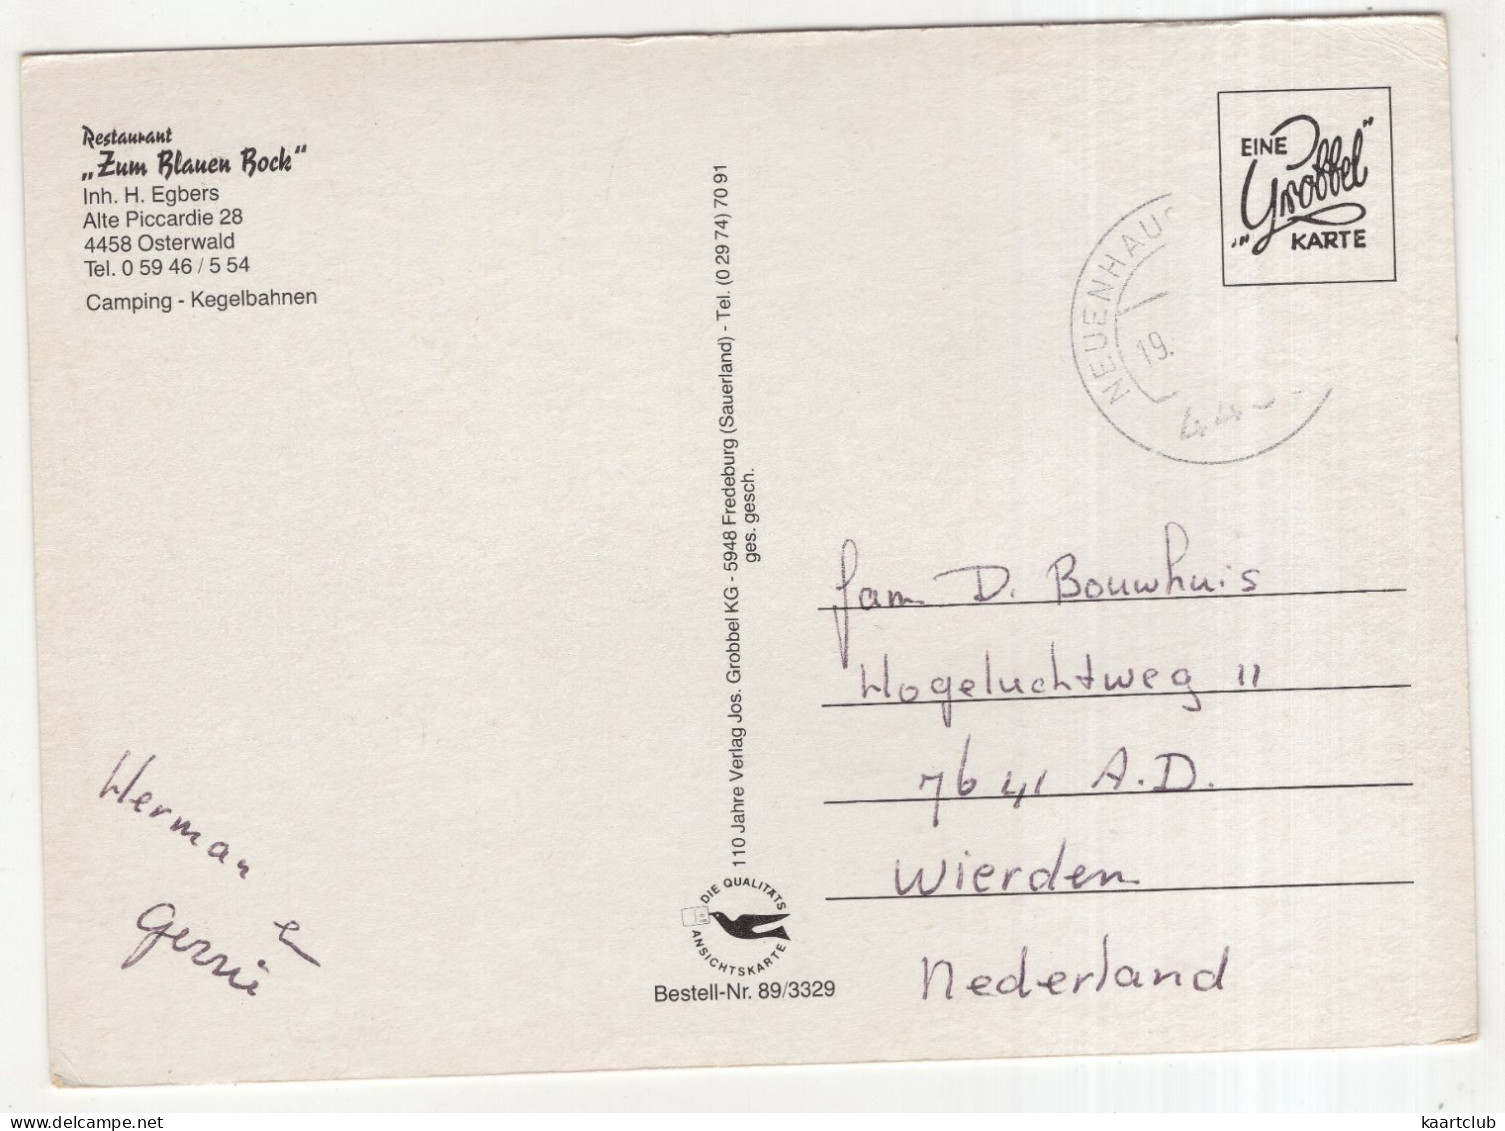 Restaurant
„Zum Blauen Bock"
Inh. H. Egbers
Alte Piccardie 28
4458 Osterwald
Tel. 0 59 46 / 5 54
Camping - Kegelbahnen
EINE
„Grobbel"
KARTE
NEUENHAUS
19.
44
110 Jahre Verlag Jos. Grobbel KG - 5948 Fredeburg (Sauerland) - Tel. (0 29 74) 70 91
ges. gesch.
fam. D. Bouwhuis
Hogeluchtweg 11
7641 A.D.
Wierden
Nederland
Herman
en
Gerrie
DIE QUALITÄTS
ANSICHTSKARTE
Bestell-Nr. 89/3329
kaartclub
delcampe.net